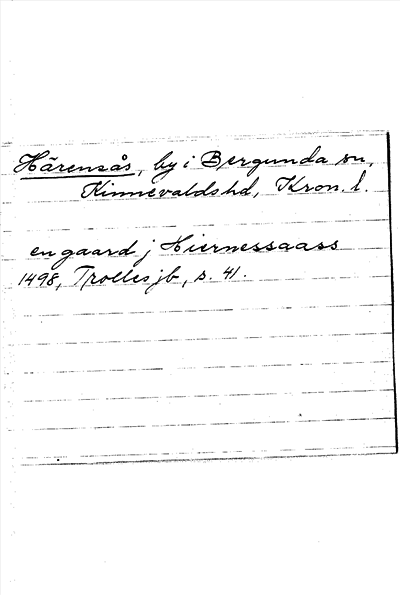 Härensås, by i Bergunda sn,
Kinnevalds hd, Kron. l.
en gaard j Hiernessaass
1498, Trolles jb, s. 41.